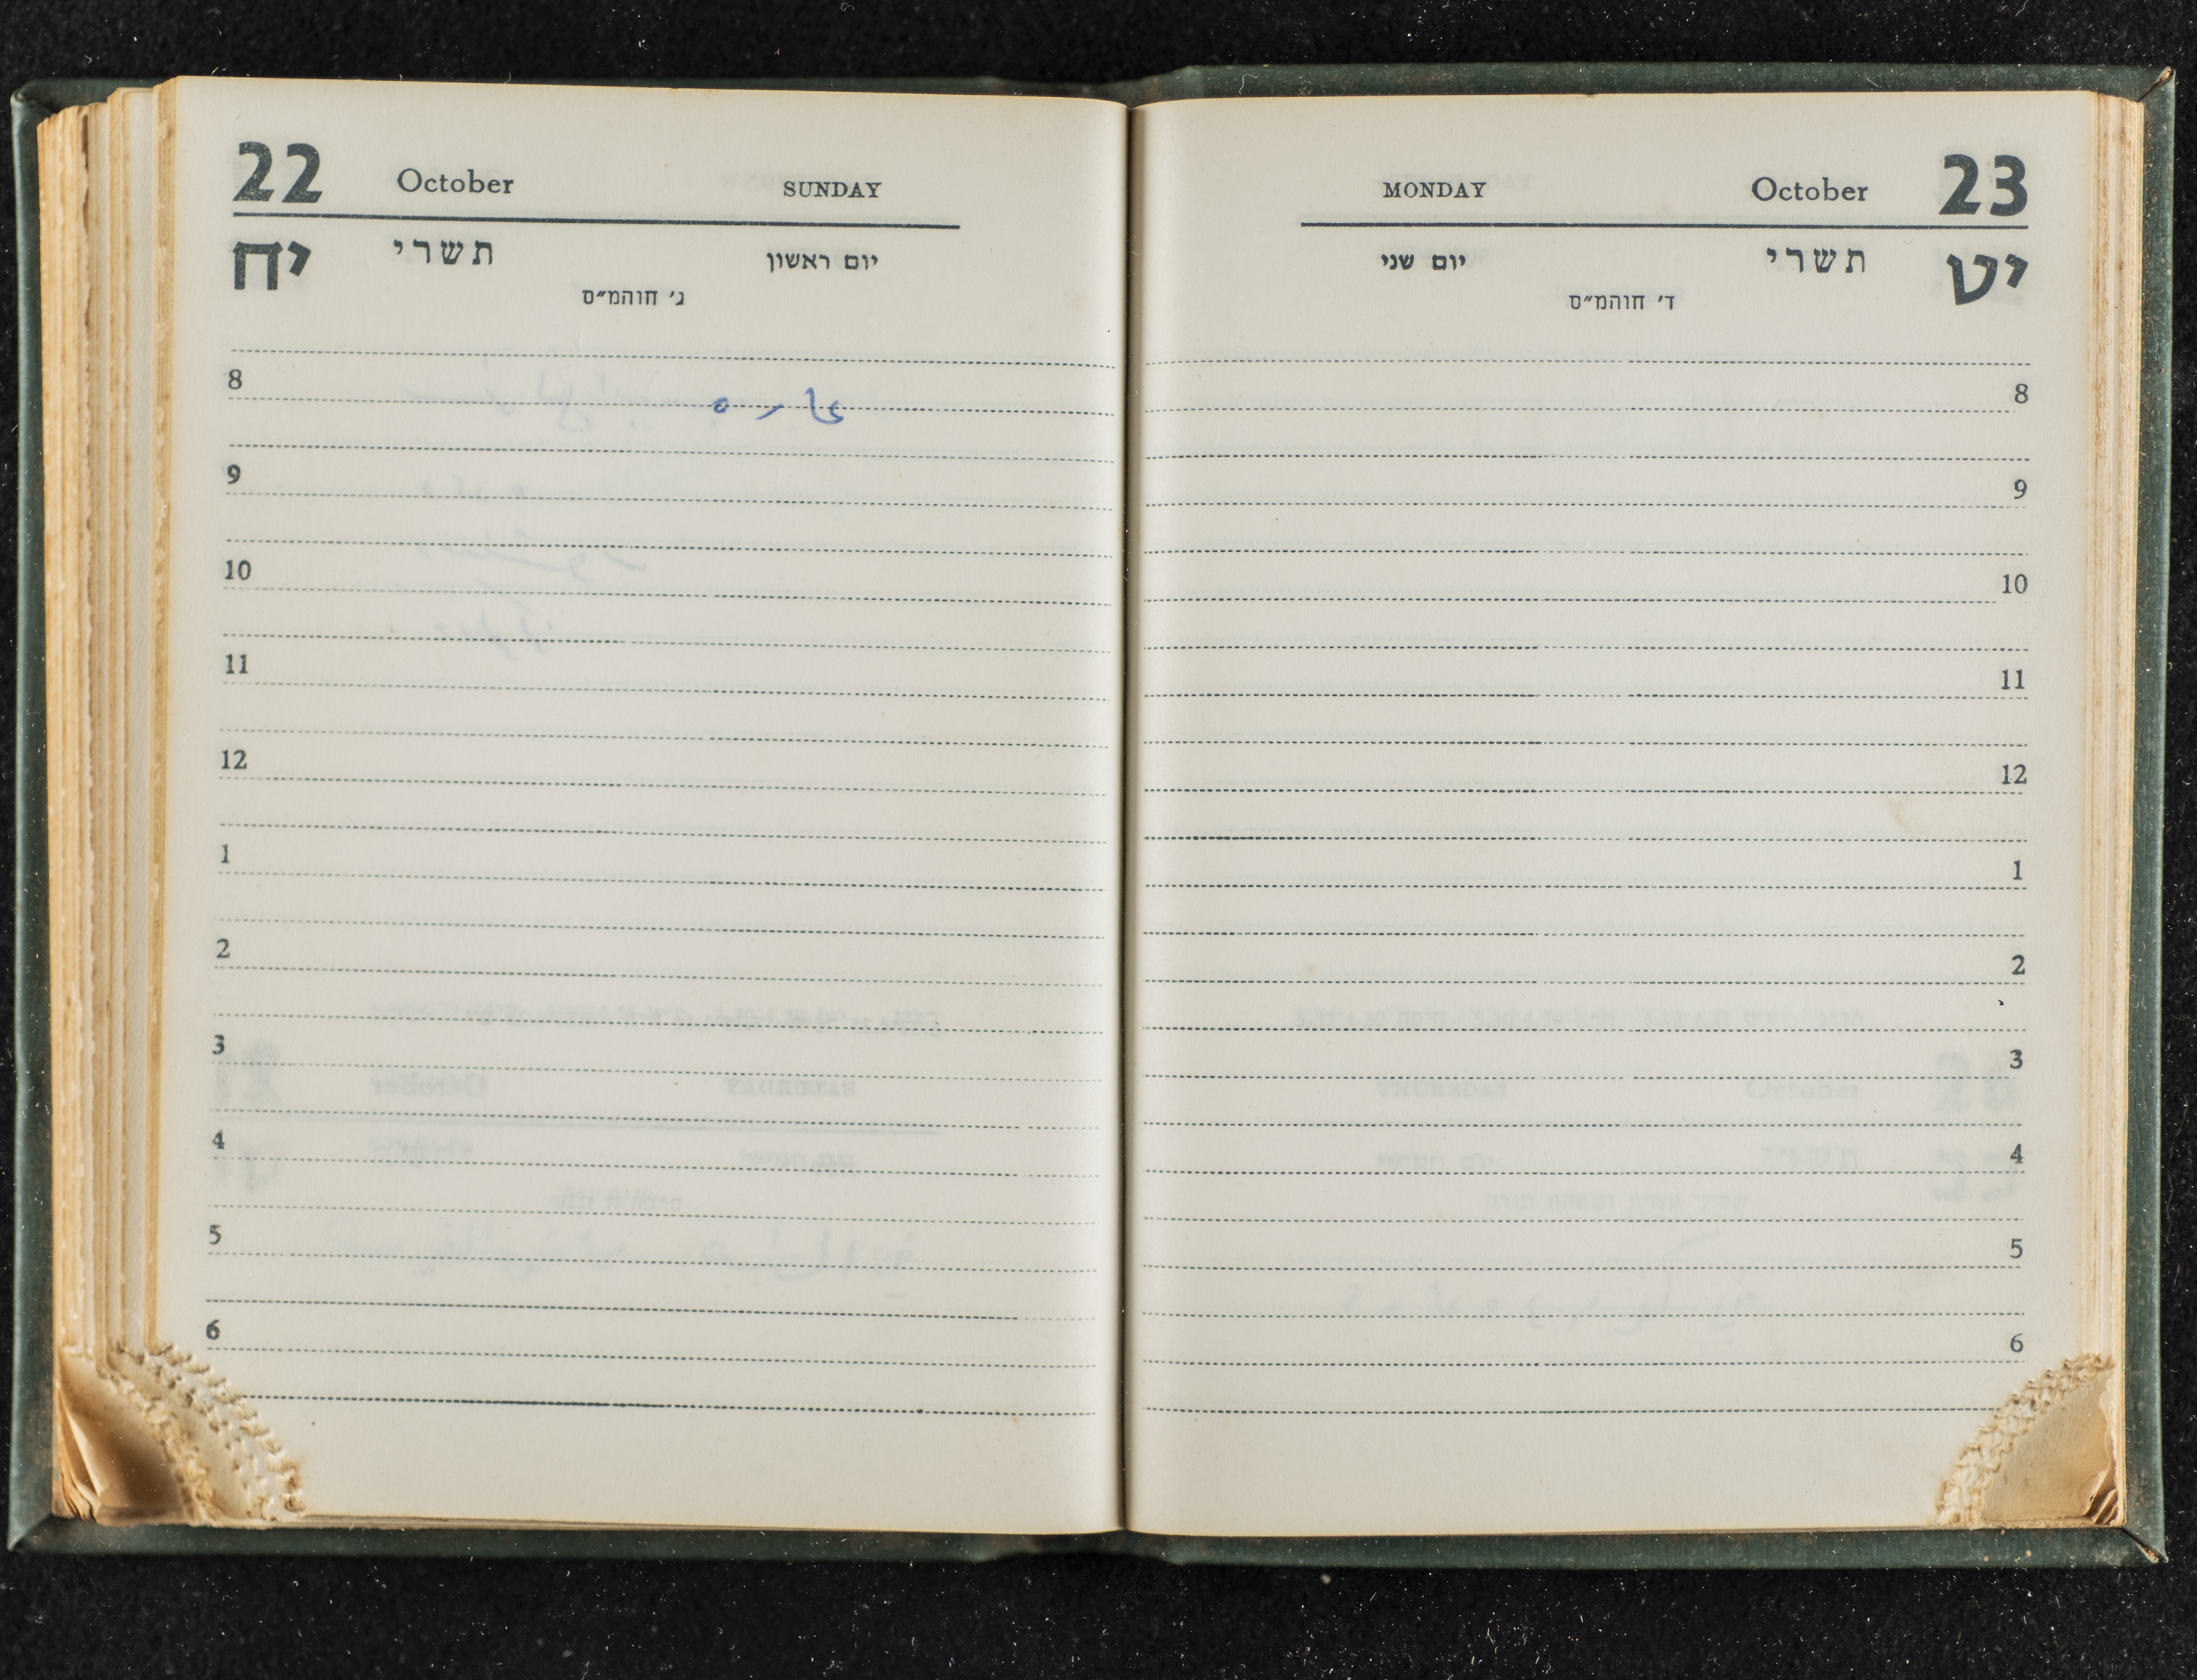 22 October SUNDAY
יח תשרי יום ראשון
ג׳ חוהמ״ס
8
9
10
11
12
1
2
3
4
5
6
MONDAY October 23
יום שני תשרי יט
ד׳ חוהמ״ס
8
9
10
11
12
1
2
3
4
5
6